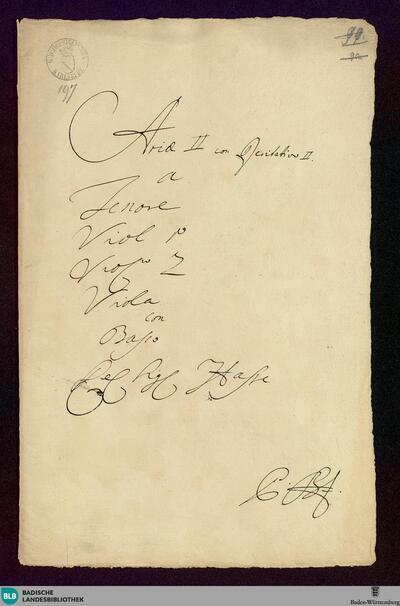 99.
197
Ariæ II con Recitativ II.
a
Tenore
Viol 1º
Viol 2
Viola
con
Basso
Del Sigl Hasse
BLB
BADISCHE
LANDESBIBLIOTHEK
Baden-Württemberg